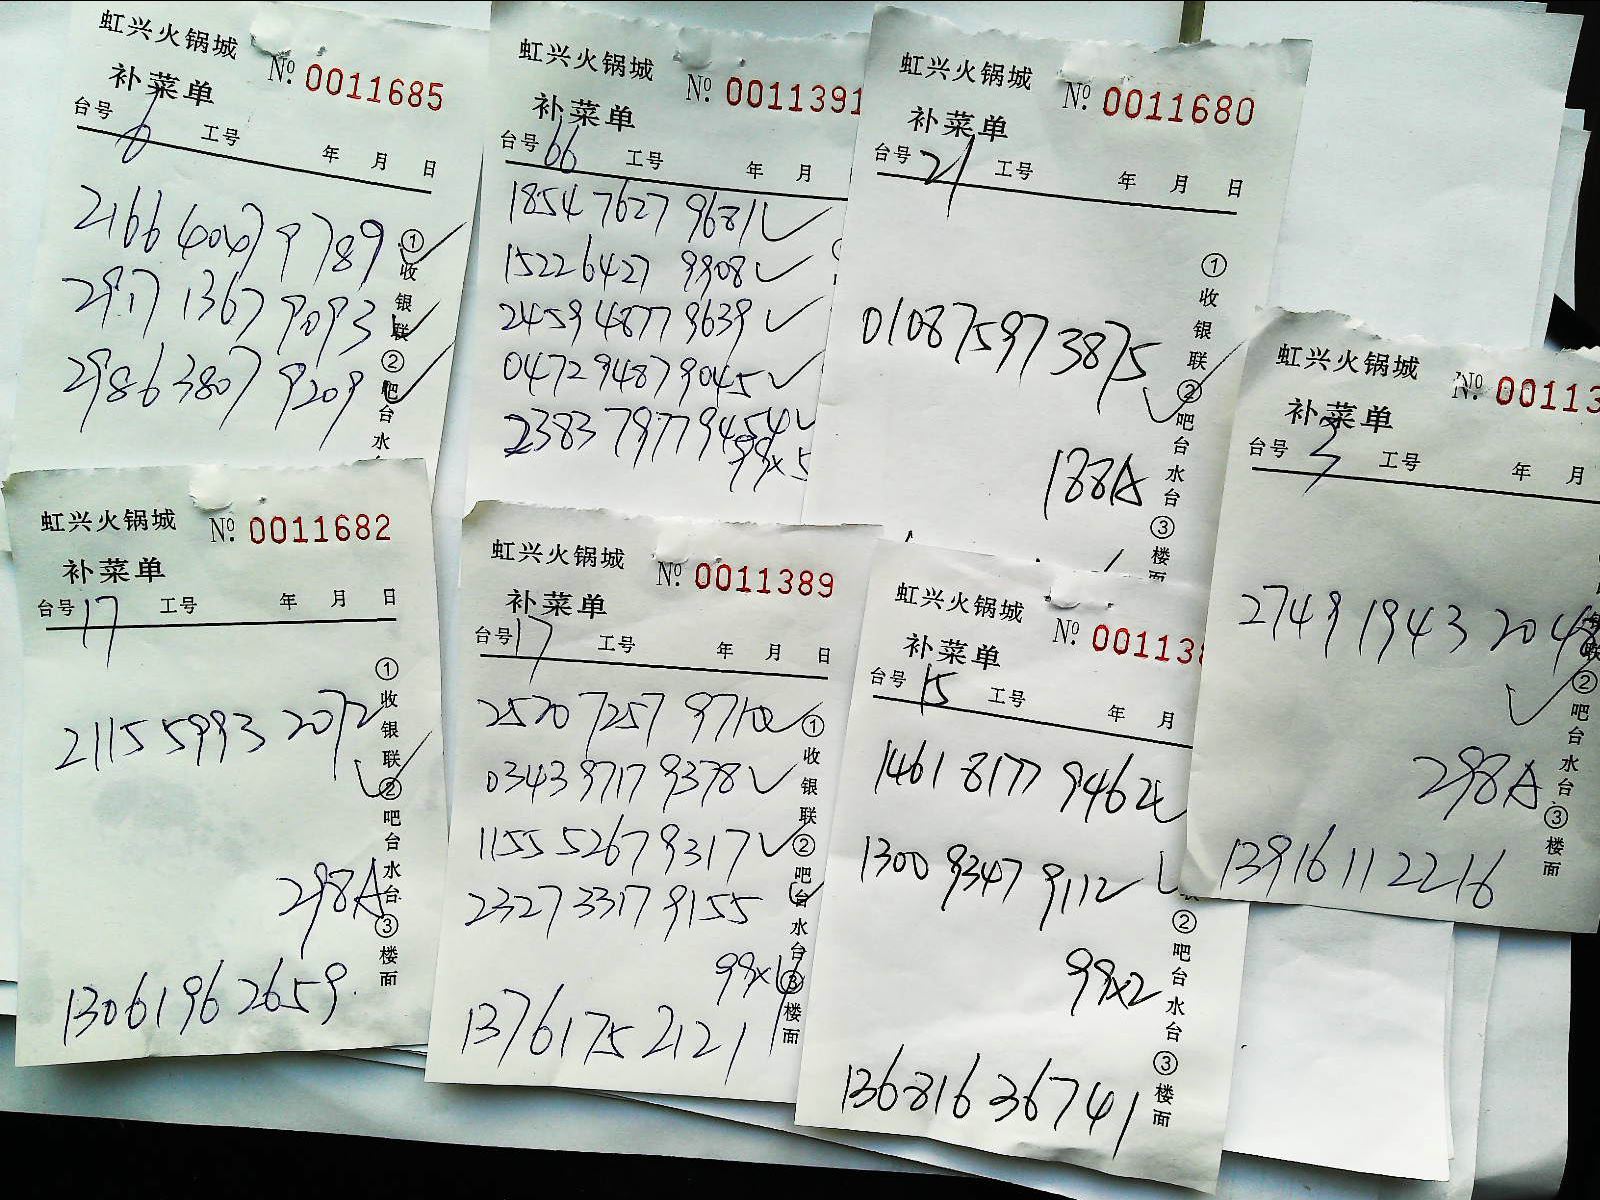 虹兴火锅城
№ 0011685
补菜单
台号 6 工号 年 月 日
2166 4047 9789
2917 1367 9093
2986 3807 9209
①收银联②吧台水
虹兴火锅城
№ 0011391
补菜单
台号 66 工号 年 月
1854 7627 9681
1522 6427 9908
2459 4877 9639
0472 9487 9045
2383 7977 9454
99x5
虹兴火锅城
№ 0011680
补菜单
台号 21 工号 年 月 日
0108 7597 3875
188A
①收银联②吧台水台③楼面
虹兴火锅城
№ 00113
补菜单
台号 3 工号 年 月
2749 1943 2048
298A
13916112216
银联②吧台水台③楼面
虹兴火锅城
№ 0011682
补菜单
台号 17 工号 年 月 日
2115 5993 2072
298A
13061962659
①收银联②吧台水台③楼面
虹兴火锅城
№ 0011389
补菜单
台号 17 工号 年 月 日
2520 7257 9710
0343 9717 9378
1155 5267 9317
2327 3317 9155
99x4
13761752121
①收银联②吧台水台③楼面
虹兴火锅城
№ 001138
补菜单
台号 15 工号 年 月
1461 8177 9462
1300 9347 9112
99x2
13681636741
联②吧台水台③楼面